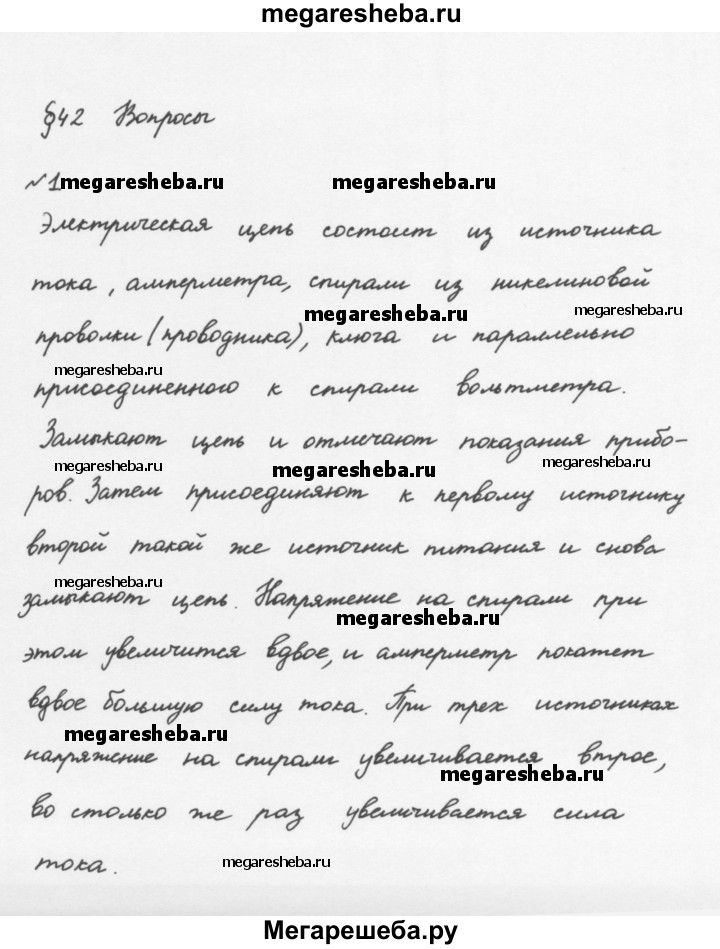 megaresheba.ru
§42 Вопросы
№1 megaresheba.ru megaresheba.ru
Электрическая цепь состоит из источника
тока, амперметра, спирали из никелиновой
megaresheba.ru megaresheba.ru
проволки (проводника), ключа и параллельно
megaresheba.ru
присоединенного к спирали вольтметра.
Замыкают цепь и отмечают показания прибо-
megaresheba.ru megaresheba.ru megaresheba.ru
ров. Затем присоединяют к первому источнику
второй такой же источник питания и снова
megaresheba.ru
замыкают цепь. Напряжение на спирали при
megaresheba.ru
этом увеличится вдвое, и амперметр покажет
вдвое большую силу тока. При трех источниках
megaresheba.ru
напряжение на спирали увеличивается втрое,
megaresheba.ru
во столько же раз увеличивается сила
тока. megaresheba.ru
Мегарешеба.ру